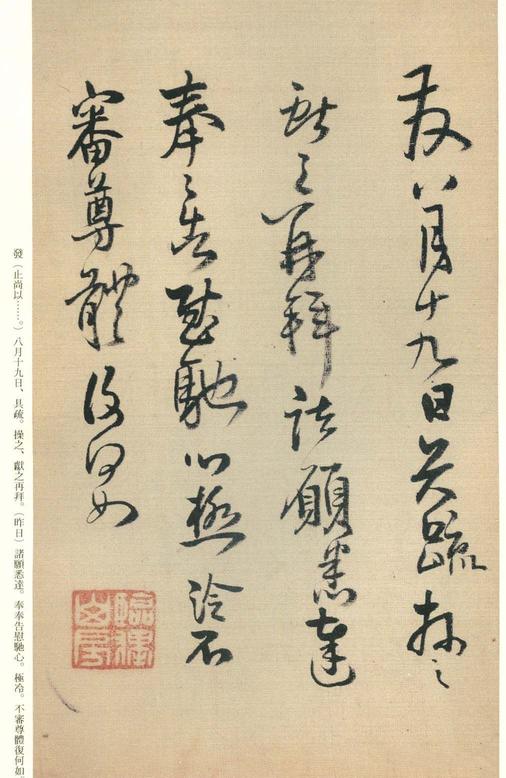 發八月十九日具疏操之
獻之再拜諸願悉達
奉〻告慰馳心極冷不
審尊體復何如
發(止尚以……。)八月十九日、具疏。操之、獻之再拜。(昨日)諸願悉達。奉奉告慰馳心。極冷。不審尊體復何如。